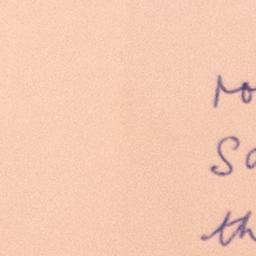 ro
Sa
th